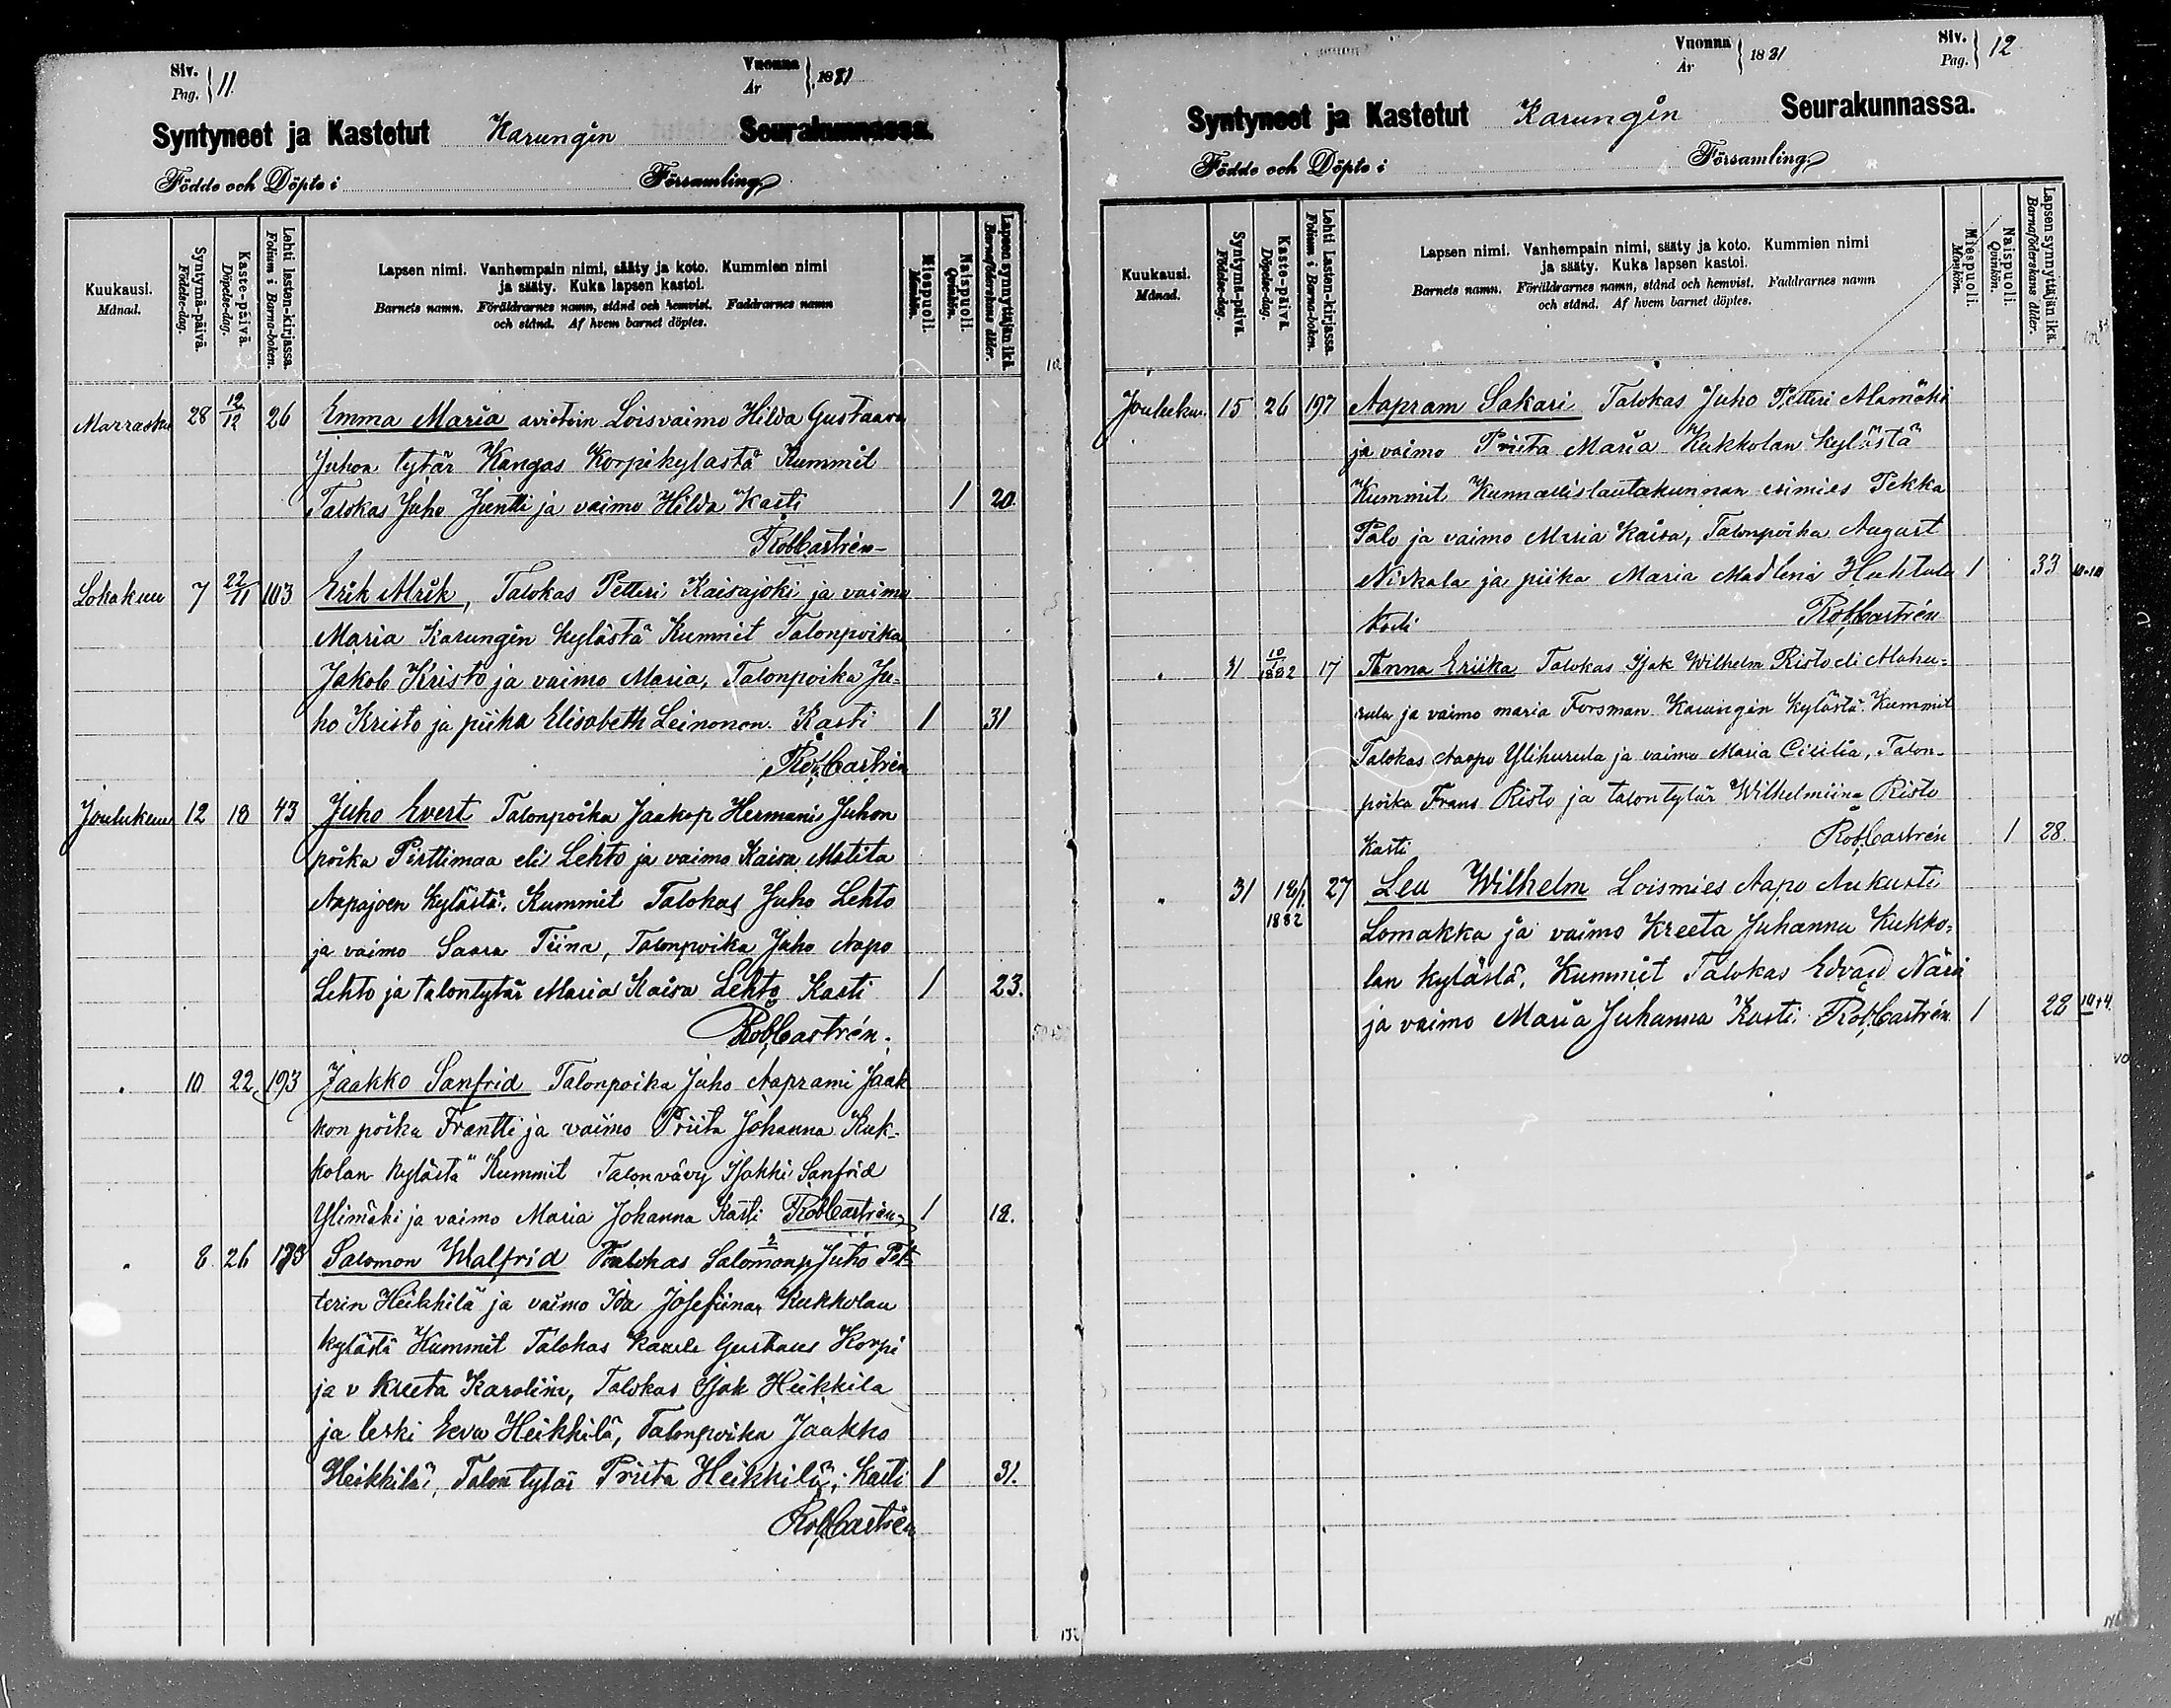 Siv. Pag. } 11.
Vuonna År } 1881
Syntyneet ja Kastetut Karungin Seurakunnassa.
Födde och Döpte i Församling.
Kuukausi. Månad.
Syntymä-päivä. Födelse-dag.
Kaste-päivä. Döpelse-dag.
Lehti lasten-kirjassa. Folium i Barna-boken.
Lapsen nimi. Vanhempain nimi, sääty ja koto. Kummien nimi
ja sääty. Kuka lapsen kastoi.
Barnets namn. Föräldrarnes namn, stånd och hemvist. Faddrarnes namn
och stånd. Af hvem barnet döptes.
Miespuoli. Mankön.
Naispuoli. Qvinkön.
Lapsen synnyttäjän ikä. Barnaföderskans ålder.
Marrasku 28 12/12 26 Emma Maria aviotoin Loisvaimo Hilda Gustaava
Juhon tytär Kangas Korpikylästä Kummit
Talokas Juho Juntti ja vaimo Hilda Kasti 1 20.
Rob. Castrén
Lokakuu 7 22/11 103 Erik Alrik, Talokas Petteri Kaisajoki ja vaimo
Maria Karungin kylästä Kummit Talonpoika
Jakob Kristo ja vaimo Maria, Talonpoika Ju-
ho Kristo ja piika Elisabeth Leinonen. Kasti 1 31
Rob. Castrén
Joulukuu 12 18 43 Juho Evert Talonpoika Jaakop Hermani Juhon
poika Pirttimaa eli Lehto ja vaimo Kaisa Matita
Aapajoen kylästä. Kummit Talokas Juho Lehto
ja vaimo Saara Tiina, Talonpoika Juho Aapo
Lehto ja talontytär Maria Kaisa Lehto Kasti 1 23.
Rob. Castrén.
" 10 22 193 Jaakko Sanfrid Talonpoika Juho Aaprami Jaak
kon poika Frantti ja vaimo Priita Johanna Kuk-
kolan kylästä Kummit Talonvävy Isakki Sanfrid
Ylimäki ja vaimo Maria Johanna Kasti Rob Castrén 1 18.
" 8 26 173 Salomon Walfrid Talokas Salomonp. Juho Pet-
terin Heikkilä ja vaimo Ida Josefiina Kukkolan
kylästä Kummit Talokas Kaarle Gustaus Korpi
ja v Kreeta Karolina, Talokas Isak Heikkila
ja leski Eeva Heikkilä, Talonpoika Jaakko
Heikkilä, Talon tytär Priita Heikkilä; Kasti 1 31.
Rob. Castrén
Vuonna År } 1881
Siv. Pag. } 12
Syntyneet ja Kastetut Karungin Seurakunnassa.
Födde och Döpte i Församling.
Kuukausi. Månad.
Syntymä-päivä. Födelse-dag.
Kaste-päivä. Döpelse-dag.
Lehti Lasten-kirjassa. Folium i Barna-boken.
Lapsen nimi. Vanhempain nimi, sääty ja koto. Kummien nimi
ja sääty. Kuka lapsen kastoi.
Barnets namn. Föräldrarnes namn, stånd och hemvist. Faddrarnes namn
och stånd. Af hvem barnet döptes.
Miespuoli. Mankön.
Naispuoli. Qvinkön.
Lapsen synnyttäjän ikä. Barnaföderskans ålder.
Jouluku. 15 26 197 Aapram Sakari Talokas Juho Petteri Alamäki
ja vaimo Priita Maria Kukkolan kylästä
Kummit Kunnallislautakunnan esimies Pekka
Palo ja vaimo Maria Kaisa, Talonpoika August
Niskala ja piika Maria Madlena Huhtala 1 33
Kasti Rob. Castrén
" 31 10/1 1882 17 Anna Eriika Talokas Isak Wilhelm Risto eli Alahu-
rula ja vaimo maria Forsman Karungin kylästä. Kummit
Talokas Aapo Ylihurula ja vaimo Maria Cicilia, Talon-
poika Frans Risto ja talontytär Wilhelmiina Risto
Kasti Rob. Castrén 1 28.
" 31 18/1 1882 27 Leu Wilhelm Loismies Aapo Aukusti
Lomakka ja vaimo Kreeta Juhanna Kukko-
lan kylästä. Kummit Talokas Edvard Näsi
ja vaimo Maria Juhanna Kasti. Rob. Castrén 1 28